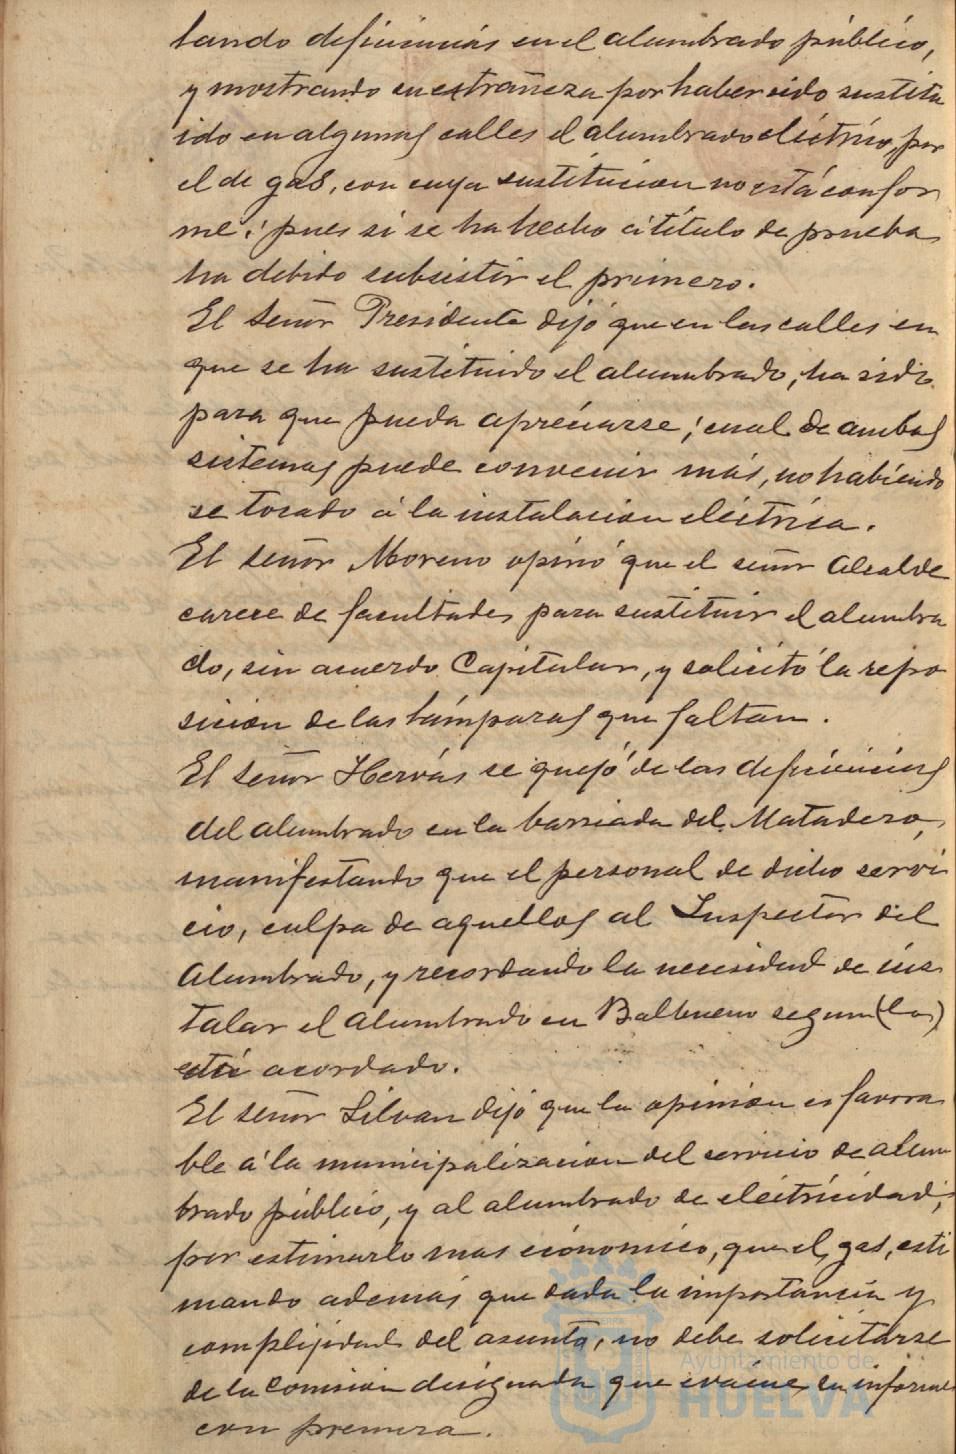 tando deficiencias en el alumbrado público,
y mostrando su extrañeza por haber sido sustitu
ido en algunas calles el alumbrado eléctrico, por
el de gas, con cuya sustitucion no está confor
me; pues si se ha hecho á título de prueba
ha debido subsistir el primero.
El Señor Presidente dijó que en las calles en
que se ha sustituido el alumbrado, ha sido
para que pueda apreciarse; cual de ambos
sistemas puede convenir más, no habiendo
se tocado á la instalacion eléctrica.
El señor Moreno opinó que el señor Alcalde
carece de facultades para sustituir el alumbra
do, sin acuerdo Capitular, y solicitó la repo
sicion de las lámparas que faltan.
El Señor Hervás se quejó de las deficiencias
del alumbrado en la barriada del Matadero,
manifestando que el personal de dicho servi
cio, culpa de aquellos al Inspector del
Alumbrado, y recordando la necesidad de ins
talar el alumbrado en Balbueno segun (lo)
está acordado.
El señor Silvan dijó que la opinion es favora
ble á la municipalizacion del servicio de alum
brado público, y al alumbrado de electricidad,
por estimarlo mas económico, que el gas, esti
mando además que dada la importancia y
complijidad del asunto, no debe solicitarse
de la Comision designada que evacue su informe
con premura.
Ayuntamiento de
HUELVA